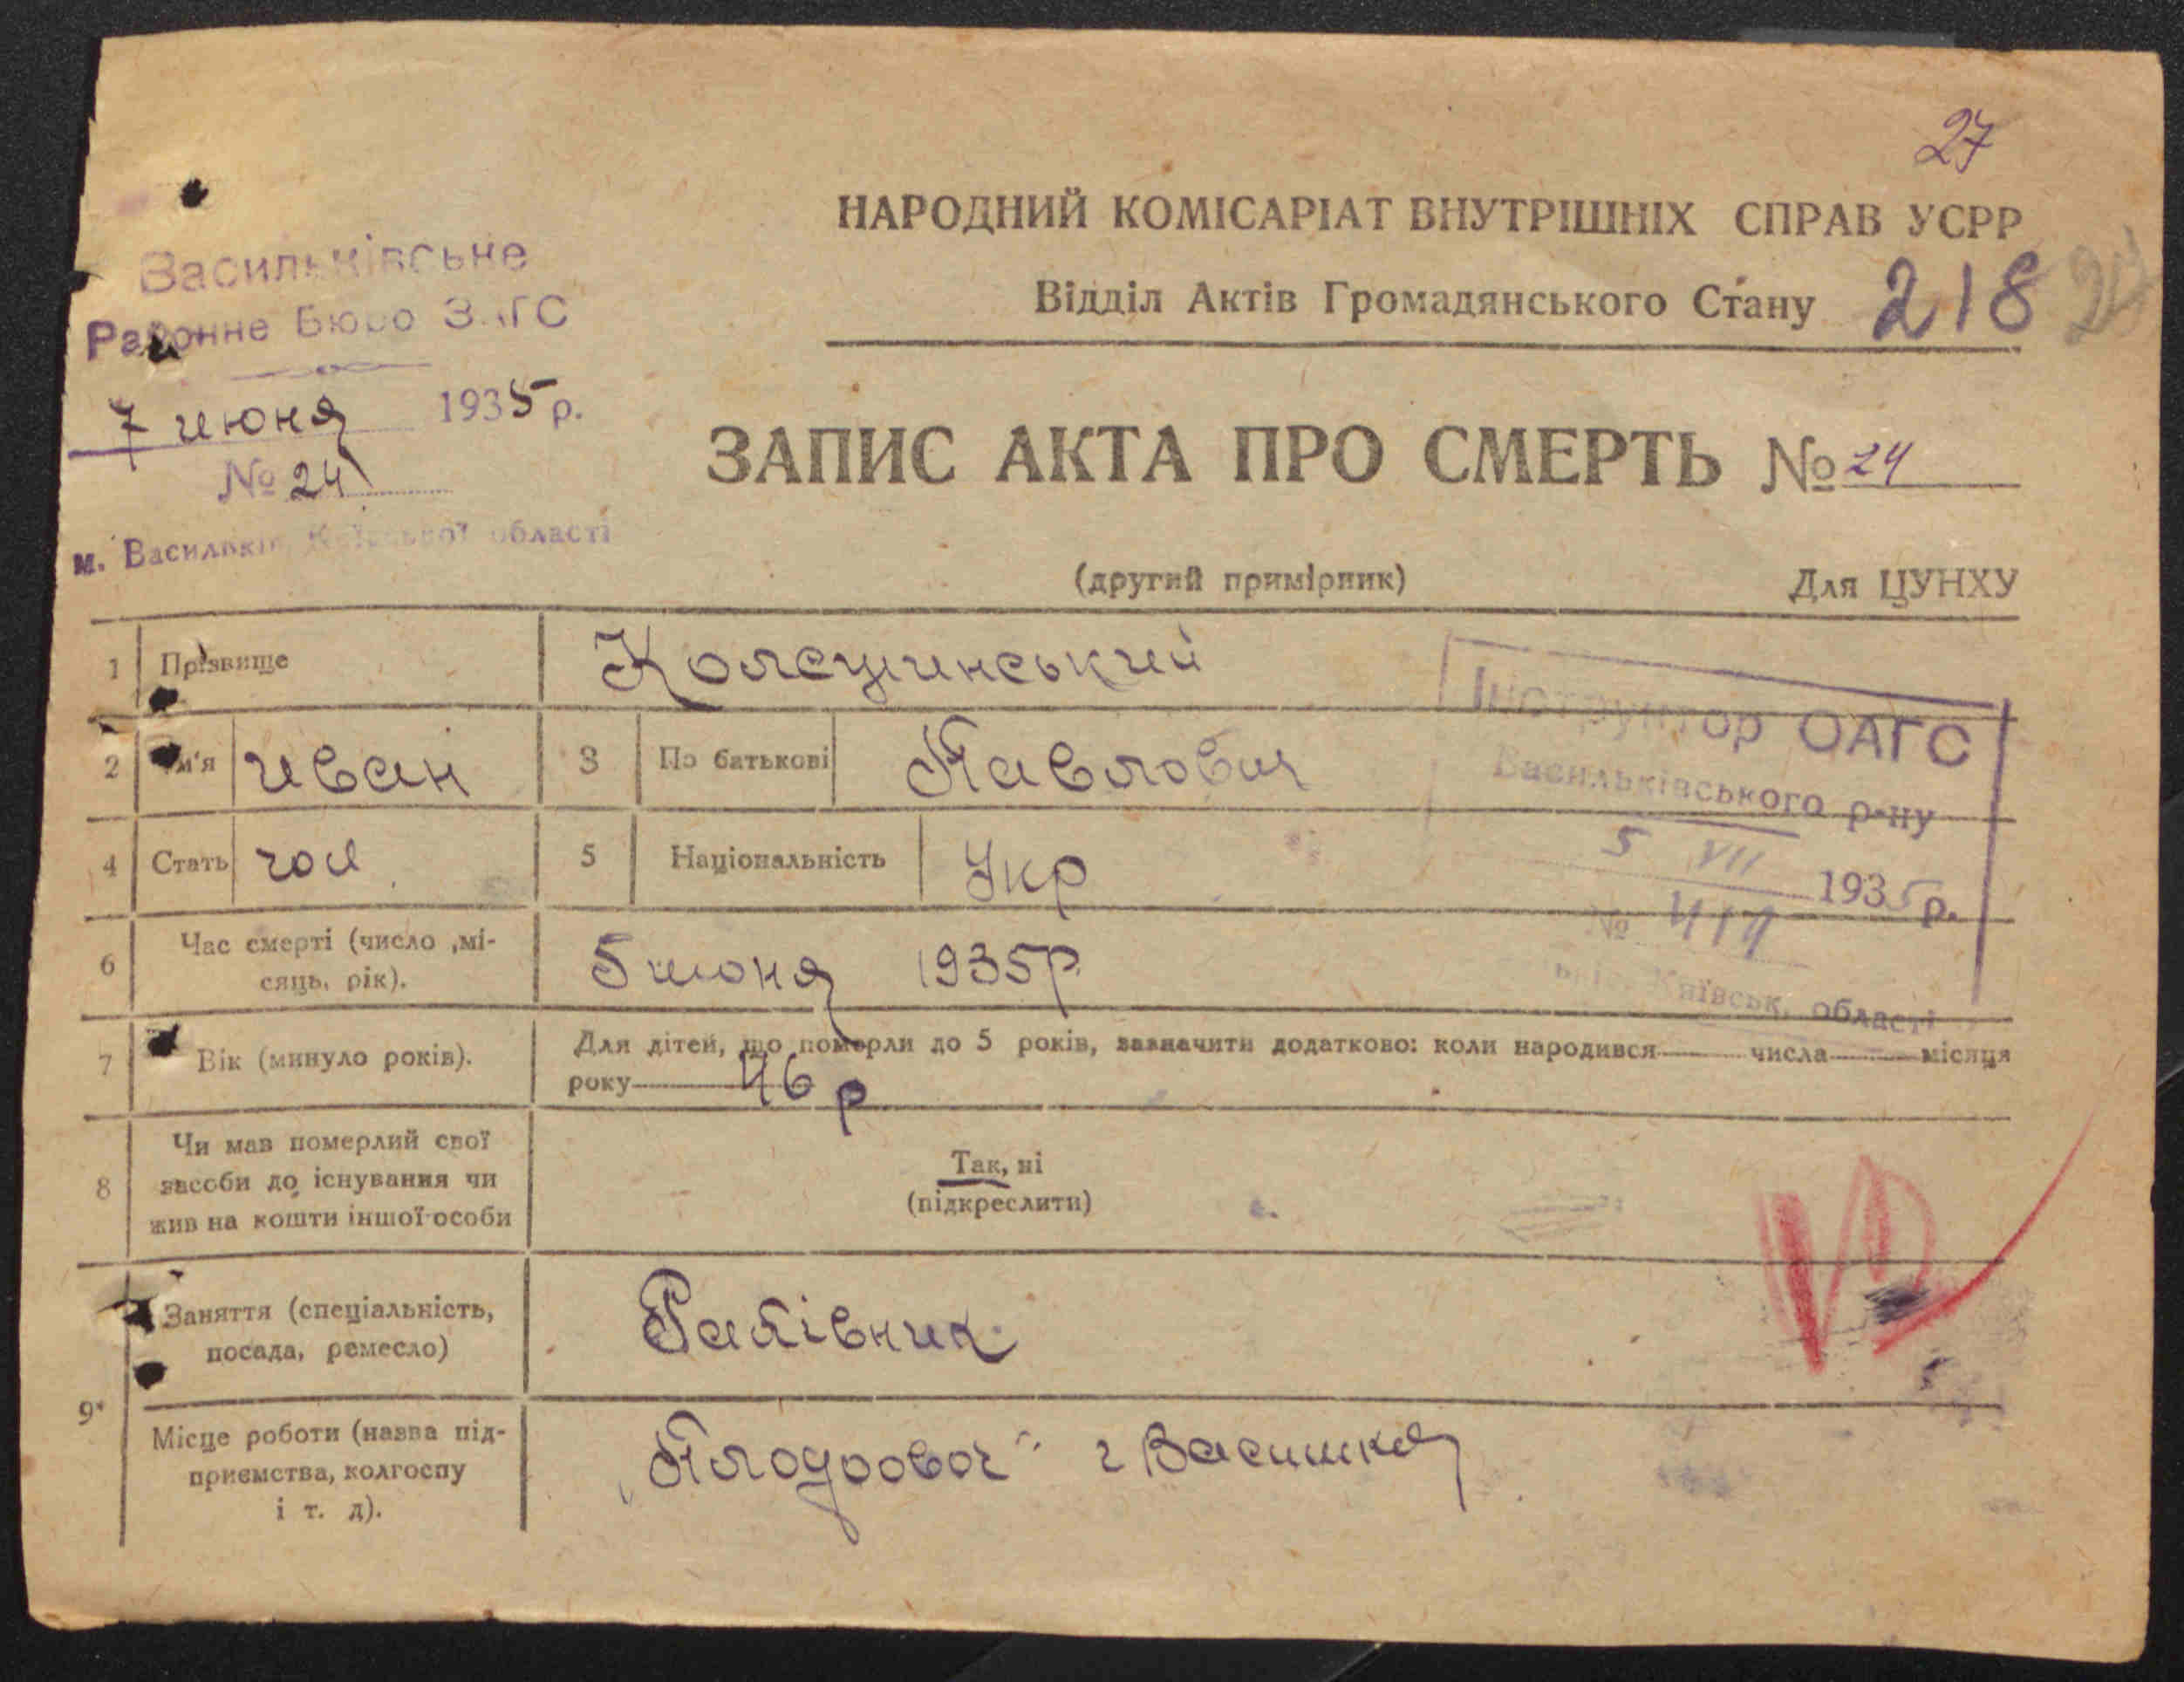 27
НАРОДНИЙ КОМІСАРІАТ ВНУТРІШНІХ СПРАВ УСРР
Відділ Актів Громадянського Стану 218
Васильківське
Районне Бюро ЗАГС
7 июня 1935 р.
№ 24
м. Васильків, Київської області
ЗАПИС АКТА ПРО СМЕРТЬ № 24
(другий примірник) Для ЦУНХУ
1 Прізвище
2 Ім'я Иван 3 По батькові Павлович
4 Стать чол 5 Національність Укр
6 Час смерті (число ,мі-
сяць, рік). 5 июня 1935 р.
Інструктор ОАГС
Васильківського р-ну
5 VII 1935 р.
№
Київськ. області
7 Вік (минуло років). Для дітей, що померли до 5 років, зазначити додатково: коли народився числа місяця
року 46 р
8 Чи мав померлий свої
засоби до існування чи
жив на кошти іншої особи
Так, ні
(підкреслити)
9. Заняття (спеціальність,
посада, ремесло)
Місце роботи (назва під-
приємства, колгоспу
і т. д).